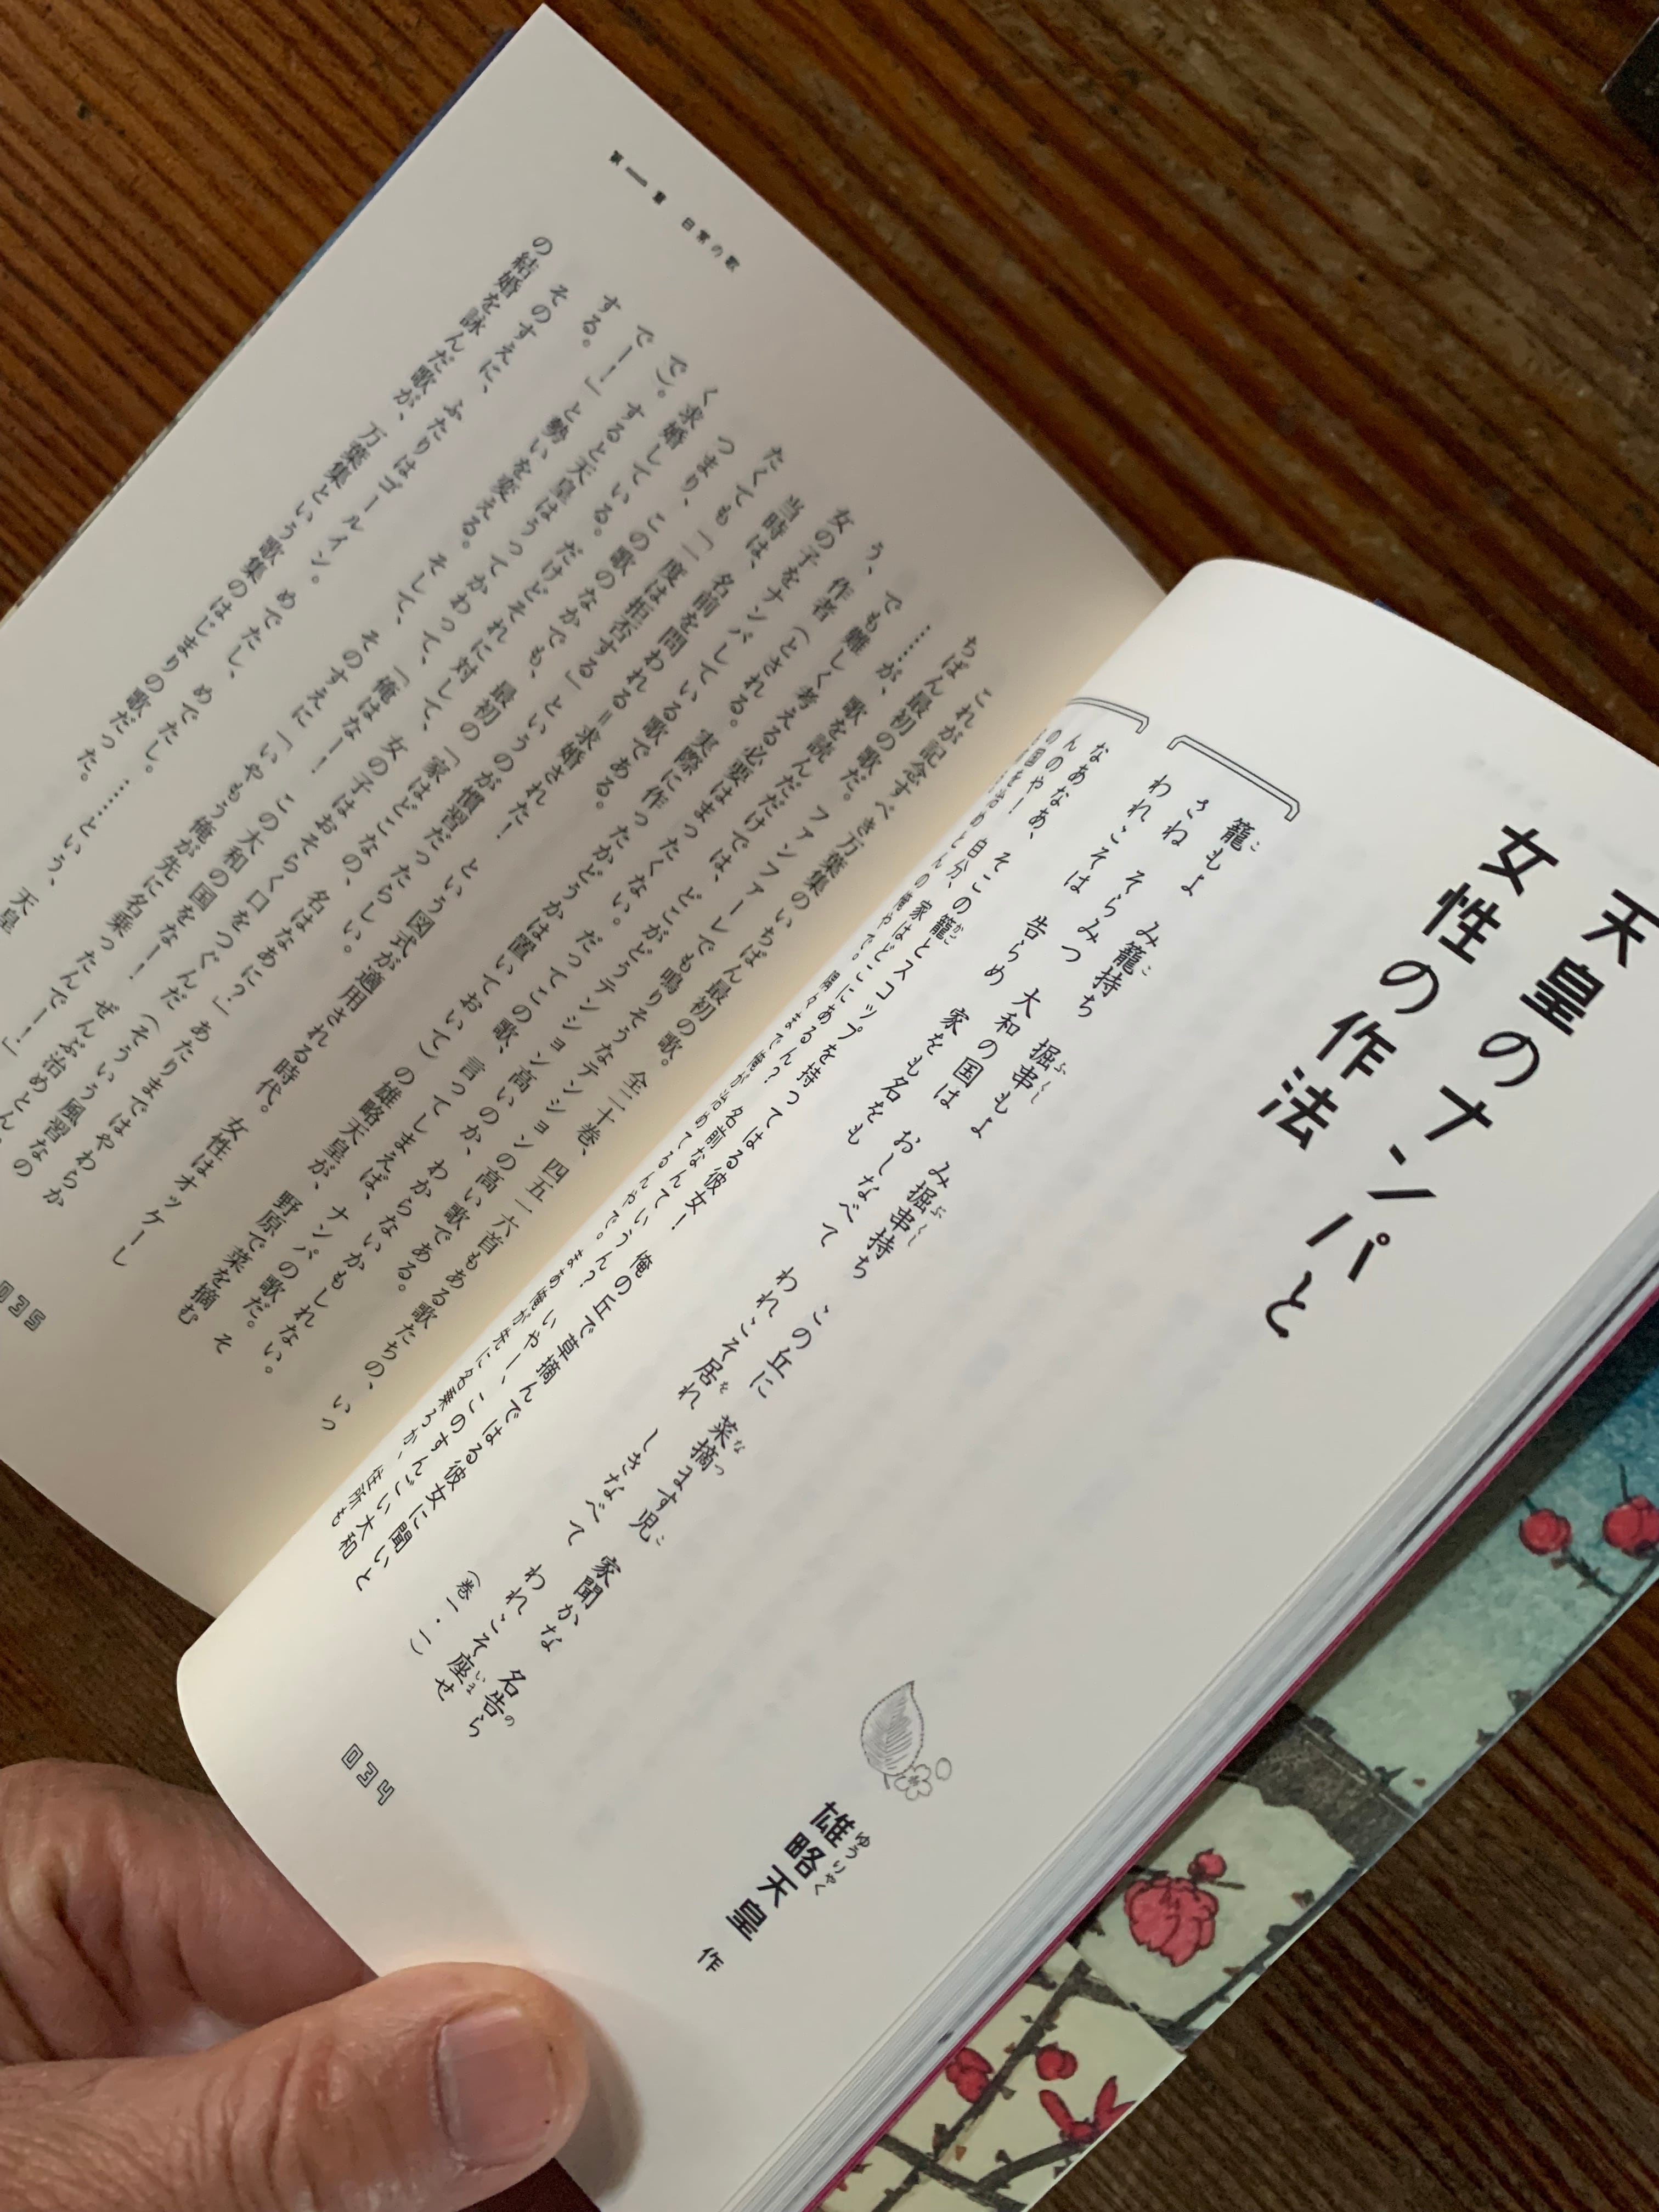 天皇のナンパと
女性の作法
雄略天皇 作
籠もよ み籠持ち 掘串もよ み掘串持ち この丘に 菜摘ます児 家聞かな 名告ら
さね そらみつ 大和の国は おしなべて われこそ居れ しきなべて われこそ座せ
われこそは 告らめ 家をも名をも
（巻一・一）
なあなあ、そこの籠とスコップを持ってはる彼女！ 俺の丘で草摘んではる彼女に聞いと
んのやー、自分、家はどこにあるん？ 名前なんていうん？ いやー、このすんごい大和
034
これが記念すべき万葉集のいちばん最初の歌。全二十巻、四五一六首もある歌たちの、いっ
ちばん最初の歌だ。ファンファーレでも鳴りそうなテンションの高い歌である。
……が、歌を読んだだけでは、どこがどうテンション高いのか、わからないかもしれない。
でも難しく考える必要はまったくない。だってこの歌、言ってしまえば、ナンパの歌だ。
う、作者（とされる。実際に作ったかどうかは置いておいて）の雄略天皇が、野原で菜を摘む
女の子をナンパしている歌である。
当時は、名前を問われる＝求婚される、という図式が適用される時代。女性はオッケーし
たくても「一度は拒否する」というのが慣習だったらしい。
つまり、この歌のなかでも、最初の「家はどこなの、名はなあに？」あたりまではやわらか
く求婚している。だけどそれに対して、女の子はおそらく口をつぐんだ（そういう風習なの
で）。すると天皇はうってかわって、「俺はな！ この大和の国をな！ ぜんぶ治めとん
でー！」と勢いを変える。そして、そのすえに「いやもう俺が先に名乗ったんでー！」
する。
そのすえに、ふたりはゴールイン。めでたし、めでたし。……という、天皇
の結婚を詠んだ歌が、万葉集という歌集のはじまりの歌だった。
第一章 日常の歌
035